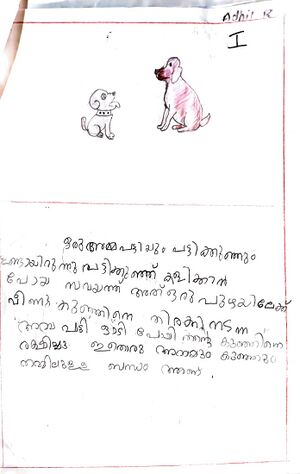 Adhil R
I
ഒരു അമ്മപട്ടിയും പട്ടിക്കുഞ്ഞും
ഉണ്ടായിരുന്നു പട്ടിക്കുഞ്ഞ് കളിക്കാൻ
പോയ സമയത്ത് അത് ഒരു പുഴയിലേക്ക്
വീണു കുഞ്ഞിനെ തിരക്കി നടന്ന
അമ്മ പട്ടി ഓടി പോയി തന്റെ കുഞ്ഞിനെ
രക്ഷിച്ചു ഇതൊരു അമ്മയും കുഞ്ഞും
തമ്മിലുള്ള ബന്ധം ആണ്